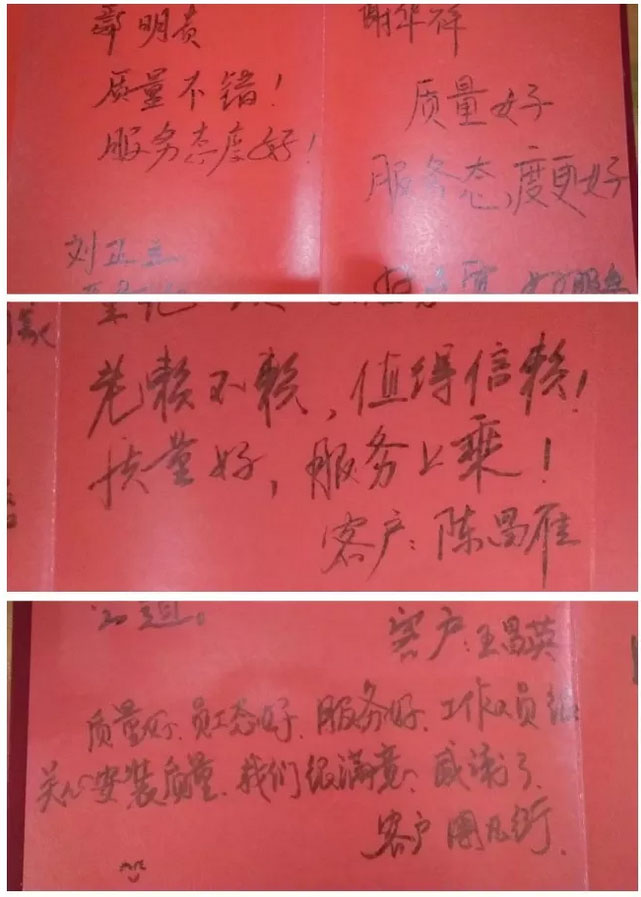 明贵
质量不错！
服务态度好！
谢华祥
质量好
服务态度更好
刘正立
老赖不赖，值得信赖！
质量好，服务上乘！
客户：陈昌雁
道。
客户：王昌英
质量好、员工态好、服务好、工作人员
关心安装质量、我们很满意、感谢了、
客户